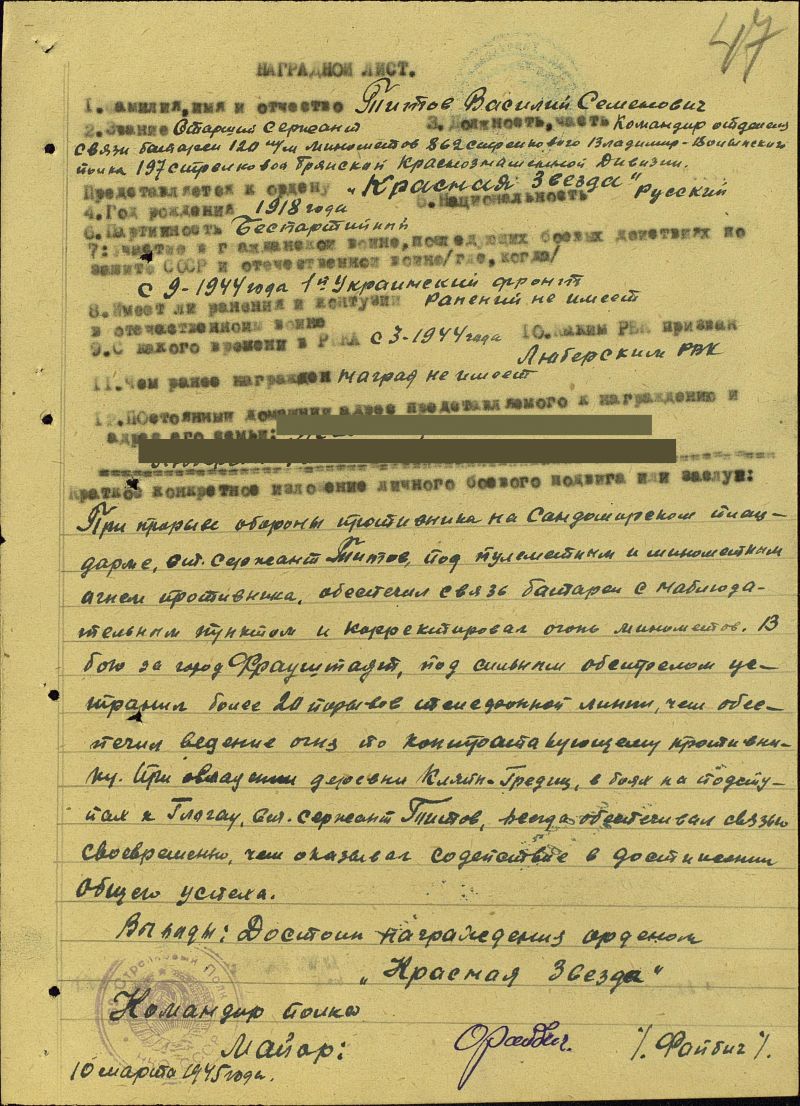 47
НАГРАДНОЙ ЛИСТ.
1.Фамилия,имя и отчество Титов Василий Семенович
2.Звание Старший сержант 3.Должность,часть Командир отделения
связи батареи 120 м/м минометов 862 стрелкового Владимир-Волынского
полка 197 стрелковой Брянской Краснознаменной Дивизии.
Представляется к ордену "Красная Звезда"
4.Год рождения 1918 года 5.Национальность Русский
6.Партийность Беспартийный
7.Участие в гражданской войне,последующих боевых действиях по
защите СССР и отечественной войне/где,когда/
с 9-1944 года 1й Украинский фронт
8.Имеет ли ранения и контузии Ранений не имеет
в отечественной войне
9.С какого времени в РККА с 3-1944 года 10.Каким РВК призван
Люберским РВК
11.Чем ранее награжден наград не имеет
12.Постоянный домашний адрес представляемого к награждению и
адрес его семьи:
Краткое конкретное изложение личного боевого подвига или заслуг:
При прорыве обороны противника на Сандомирском плац-
дарме, ст. сержант Титов, под пулеметным и минометным
огнем противника, обеспечил связь батареи с наблюда-
тельным пунктом и корректировал огонь минометов. В
бою за город Фрауштадт, под сильным обстрелом ус-
транил более 20 порывов телефонной линии, чем обес-
печил ведение огня по контратакующему противни-
ку. При овладении деревни Кляйн-Гредиц, в боях на подсту-
пах к Глагау, ст. сержант Титов, всегда обеспечивал связью
своевременно, чем оказывал содействие в достижении
общего успеха.
Выводы: Достоин награждения орденом
"Красная Звезда"
Командир полка
Майор: /. Файбич /.
10 марта 1945 года.